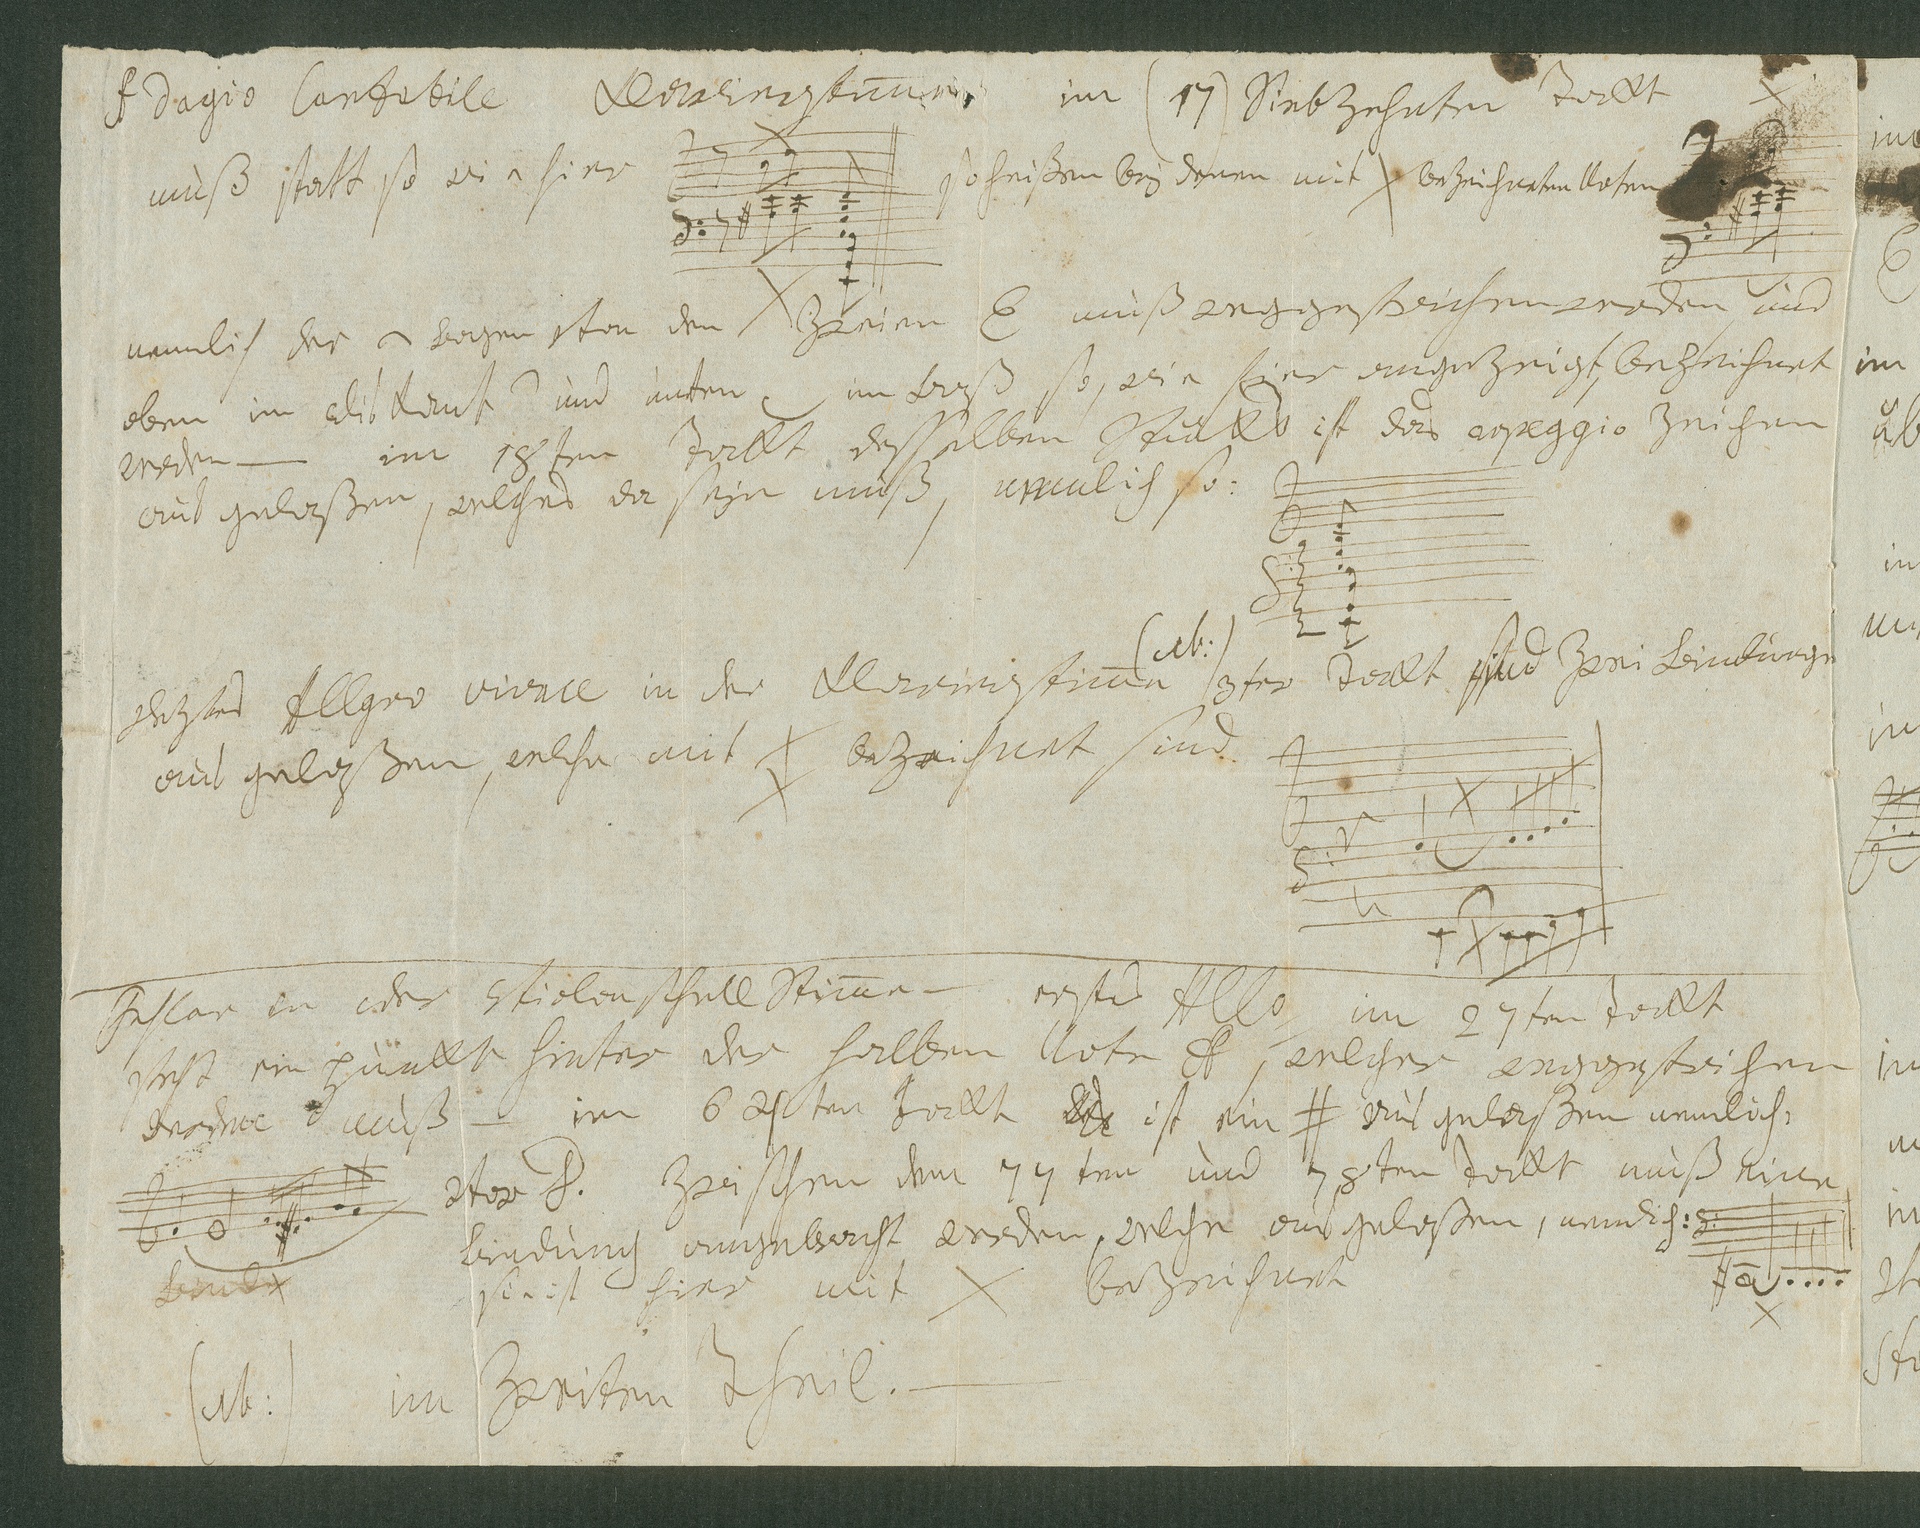 Adagio Cantabile Klawierstimme im (17) Siebzehnten Takt
muß statt so wie hier so heißen bej denen mit X bezeichneten Noten
nemlich der ⌢ bogen von den zweien E muß weggestrichen werden, und
oben im diskant und unten im Baß so, wie hier angezeigt, bezeichnet
werden — im 18ten Takt desselben Stücks ist das arpeggio Zeichen
ausgelaßen, welches da sejn muß, nemlich so:
(Nb:)
leztes Allgro vivace in der Klawierstimme 3ter Takt sind zwei Bindungen
ausgelaßen, welche mit X bezeichnet sind
Fehler in der Violonschell Stimme — erstes Allo im 27ten Takt
steht ein punkt hinter der halben Note A, welcher weggestrichen
werden muß — im ten Takt ist ein # ausgelaßen nemlich:
2ter Th. zwischen dem 77ten und 78ten Takt muß eine
Bindung angebracht werden, welche ausgelaßen, nemlich:
sie ist hier mit X bezeichnet
(Nb:) im zweiten Theil. —